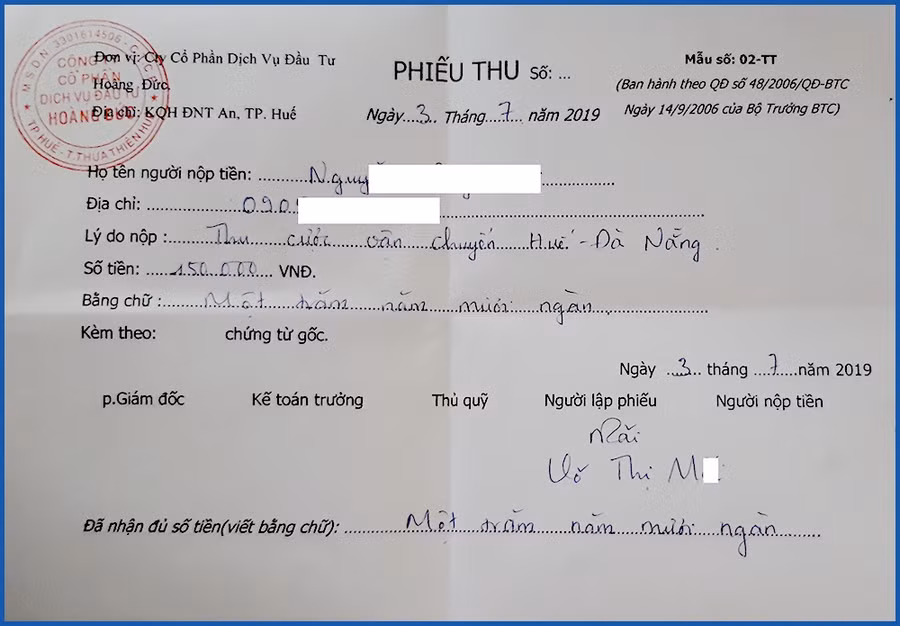 M.S.D.N: 3301614506 - C.T.C.P
CÔNG TY
CỔ PHẦN
DỊCH VỤ ĐẦU TƯ
HOÀNG ĐỨC
TP. HUẾ - T. THỪA THIÊN HUẾ
Đơn vị: Cty Cổ Phần Dịch Vụ Đầu Tư
Hoàng Đức
Địa chỉ: KQH ĐNT An, TP. Huế
PHIẾU THU Số: ...
Ngày...3.. Tháng...7.. năm 2019
Mẫu số: 02-TT
(Ban hành theo QĐ số 48/2006/QĐ-BTC
Ngày 14/9/2006 của Bộ Trưởng BTC)
Họ tên người nộp tiền: ..........Nguy
Địa chỉ: ................090
Lý do nộp :........Thu cước vận chuyển Huế - Đà Nẵng.
Số tiền: .....150.000.... VNĐ.
Bằng chữ :........Một trăm năm mươi ngàn.
Kèm theo: chứng từ gốc.
Ngày ...3.. tháng ....7....năm 2019
p.Giám đốc Kế toán trưởng Thủ quỹ Người lập phiếu Người nộp tiền
Võ Thị M
Đã nhận đủ số tiền(viết bằng chữ): ............Một trăm năm mươi ngàn........